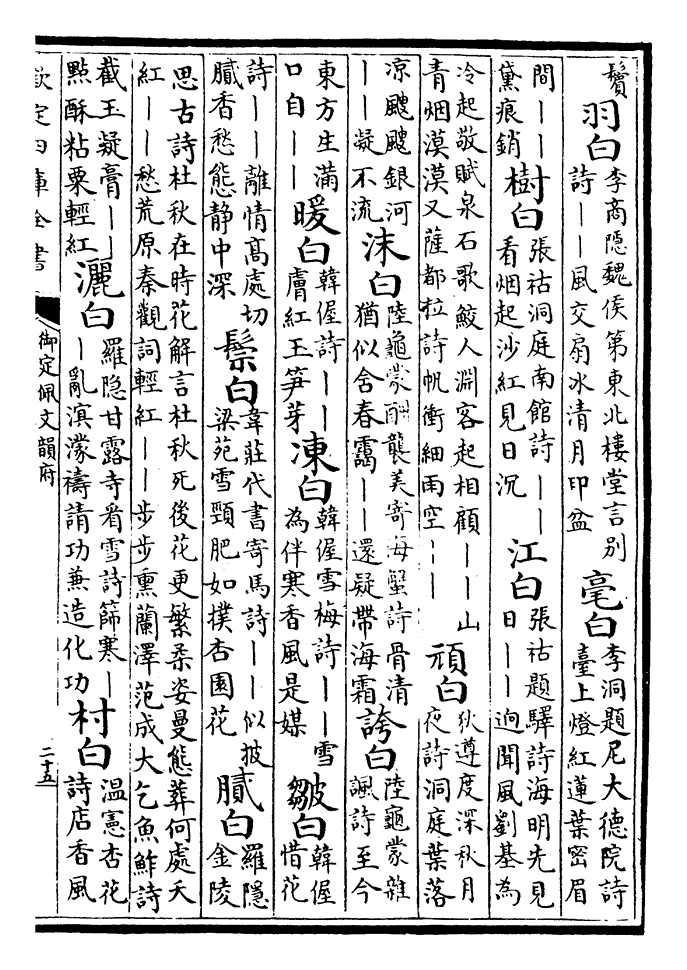 鬢羽白李商隱魏侯第東北樓堂言別詩——風交扇冰清月印盆毫白李洞題尼大德院詩臺上燈紅蓮葉密眉
間——黛痕銷樹白張祜洞庭南館詩——看烟起沙紅見日沉江白張祜題驛詩海明先見日——逈聞風劉基為
冷起敬賦泉石歌鮫人淵客起相顧——山青烟漠漠又薩都拉詩帆衝細雨空——頑白狄遵度深秋月夜詩洞庭葉落
凉颼颼銀河——凝不流沫白陸龜蒙酬襲美寄海蟹詩骨清猶似含春靄——還疑帶海霜誇白陸龜蒙雜諷詩至今
東方生滿口自——暖白韓偓詩——膚紅玉笋芽凍白韓偓雪梅詩——雪為伴寒香風是媒皺白韓偓惜花
詩——離情高處切膩香愁態静中深鬃白韋莊代書寄馬詩——似披梁苑雪頸肥如撲杏園花膩白羅隱金陵
思古詩杜秋在時花解言杜秋死後花更繁柔姿曼態葬何處天紅——愁荒原秦觀詞輕紅——步步熏蘭澤范成大乞魚鮓詩
截玉凝膏——點酥粘粟輕紅灑白羅隱甘露寺看雪詩篩寒——亂溟濛禱請功兼造化功村白温憲杏花詩店香風
欽定四庫全書
御定佩文韻府
二十五